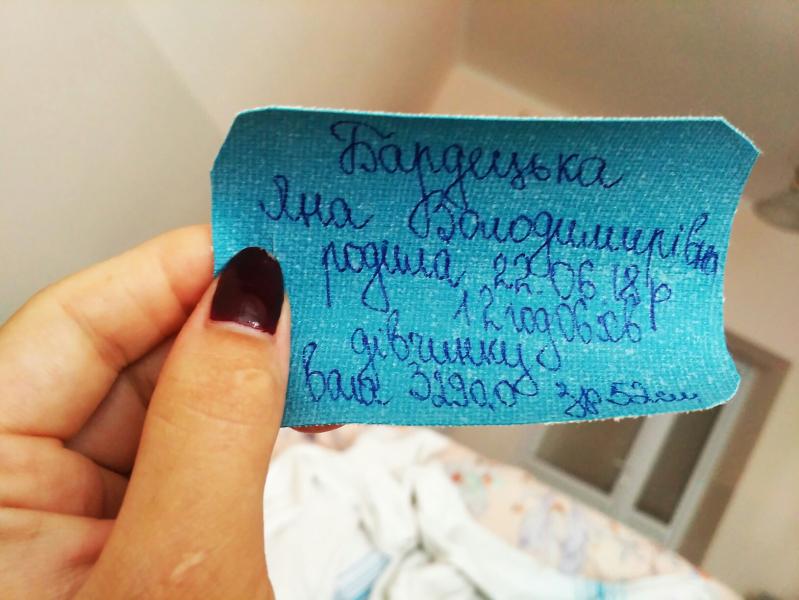 Бардецька
Яна Володимирівна
родила 22.06.18р
12год06хв
дівчинку
Вага 3290,0 зр 52см